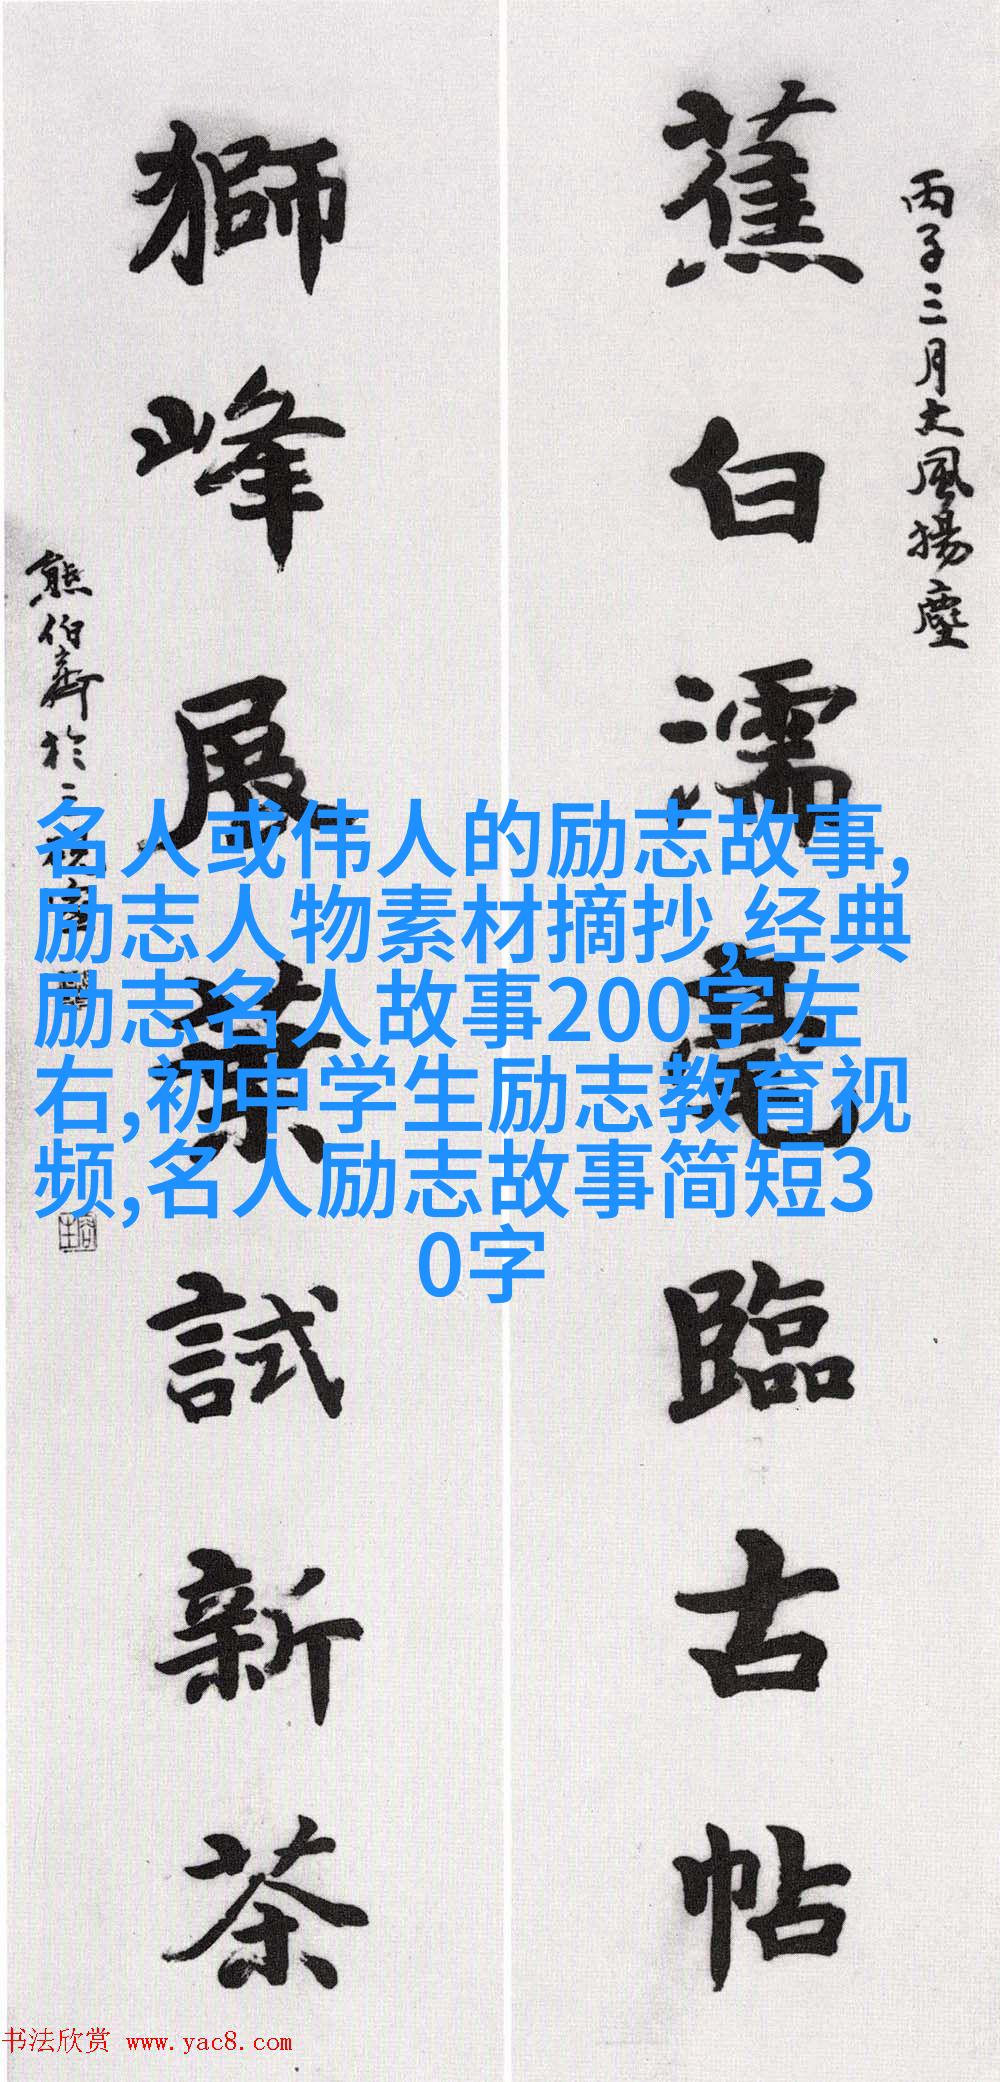 丙子三月大風揚塵
蕉白濡毫臨古帖
獅峰展葉試新茶
熊伯齊於
名人或伟人的励志故事,
励志人物素材摘抄,经典
励志名人故事200字左
右,初中学生励志教育视
频,名人励志故事简短3
0字
书法欣赏 www.yac8.com